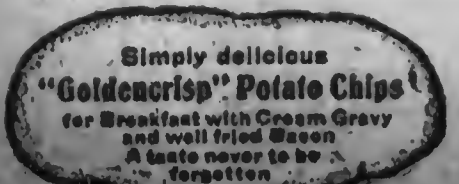 Simply delicious
"Goldencrisp" Potato Chips
for Breakfast with Cream Gravy
and well fried Bacon
A taste never to be
forgotten